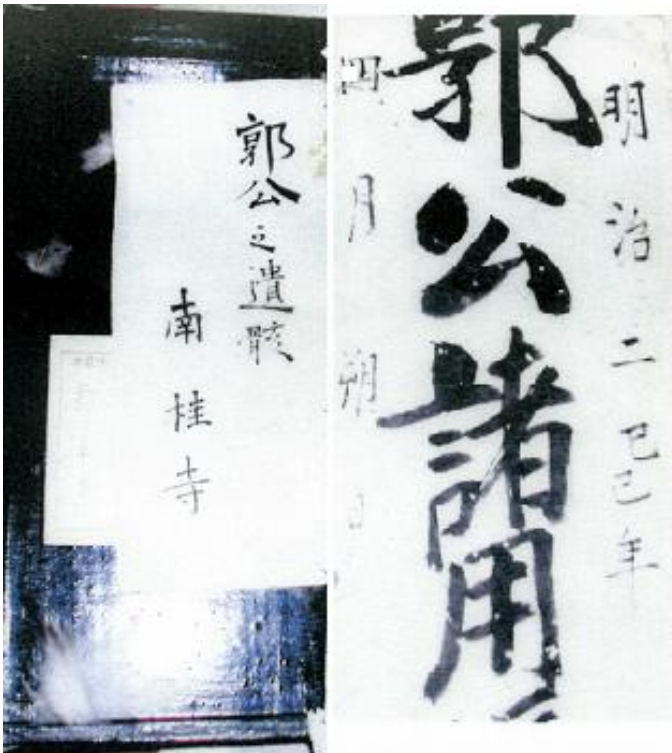 郭公之遺骸
南桂寺
明治二己巳年
郭公諸用
四月朔日